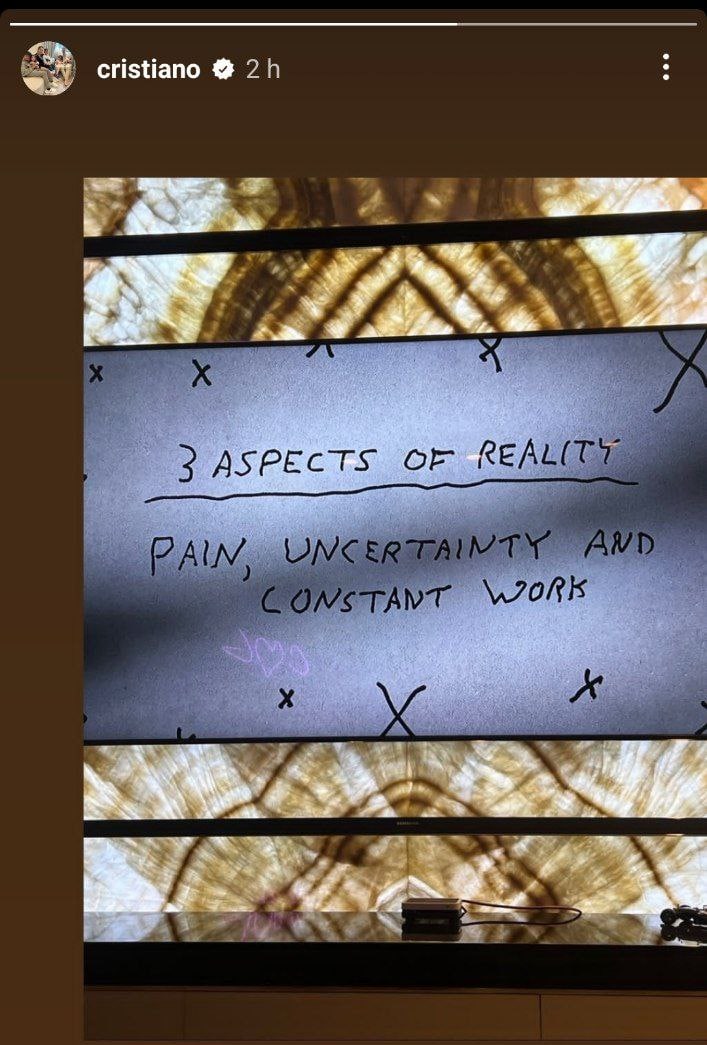 cristiano 2 h
3 ASPECTS OF REALITY
PAIN, UNCERTAINTY AND
CONSTANT WORK